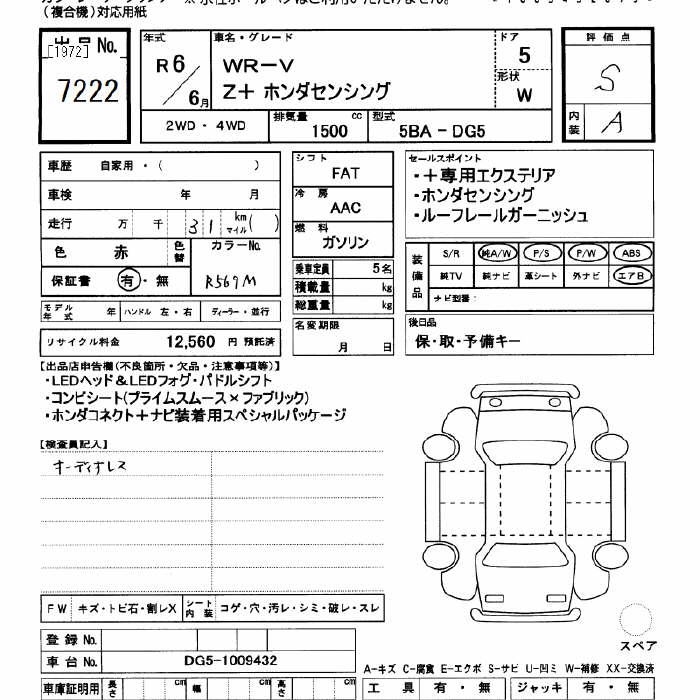 (複合機)対応用紙
出品 No.
[1972]
7222
年式
R6/6月
車名・グレード
WR-V
Z+ ホンダセンシング
ドア
5
形状
W
評価点
S
内装
A
2WD・4WD
排気量
1500 cc
型式
5BA-DG5
車歴 自家用・( )
車検 年 月
走行 万 千 31 km マイル( )
色 赤
色替
カラーNo.
R569M
保証書 有・無
モデル年式 年
ハンドル 左・右
ディーラー・並行
リサイクル料金 12,560 円 預託済
シフト
FAT
冷房
AAC
燃料
ガソリン
乗車定員 5名
積載量 kg
総重量 kg
名変期限
月 日
セールスポイント
・+専用エクステリア
・ホンダセンシング
・ルーフレールガーニッシュ
装備品
S/R 純A/W P/S P/W ABS
純TV 純ナビ 革シート 外ナビ エアB
ナビ型番:
後日品
保・取・予備キー
【出品店申告欄(不良箇所・欠品・注意事項等)】
・LEDヘッド&LEDフォグ・パドルシフト
・コンビシート(プライムスムース×ファブリック)
・ホンダコネクト+ナビ装着用スペシャルパッケージ
【検査員記入】
オーディオレス
FW キズ・トビ石・割レX
シート内装 コゲ・穴・汚レ・シミ・破レ・スレ
登録 No.
車台 No. DG5-1009432
スペア
A-キズ C-腐食 E-エクボ S-サビ U-凹ミ W-補修 XX-交換済
車庫証明用 長さ cm 幅 cm 高さ cm
工具 有・無
ジャッキ 有・無